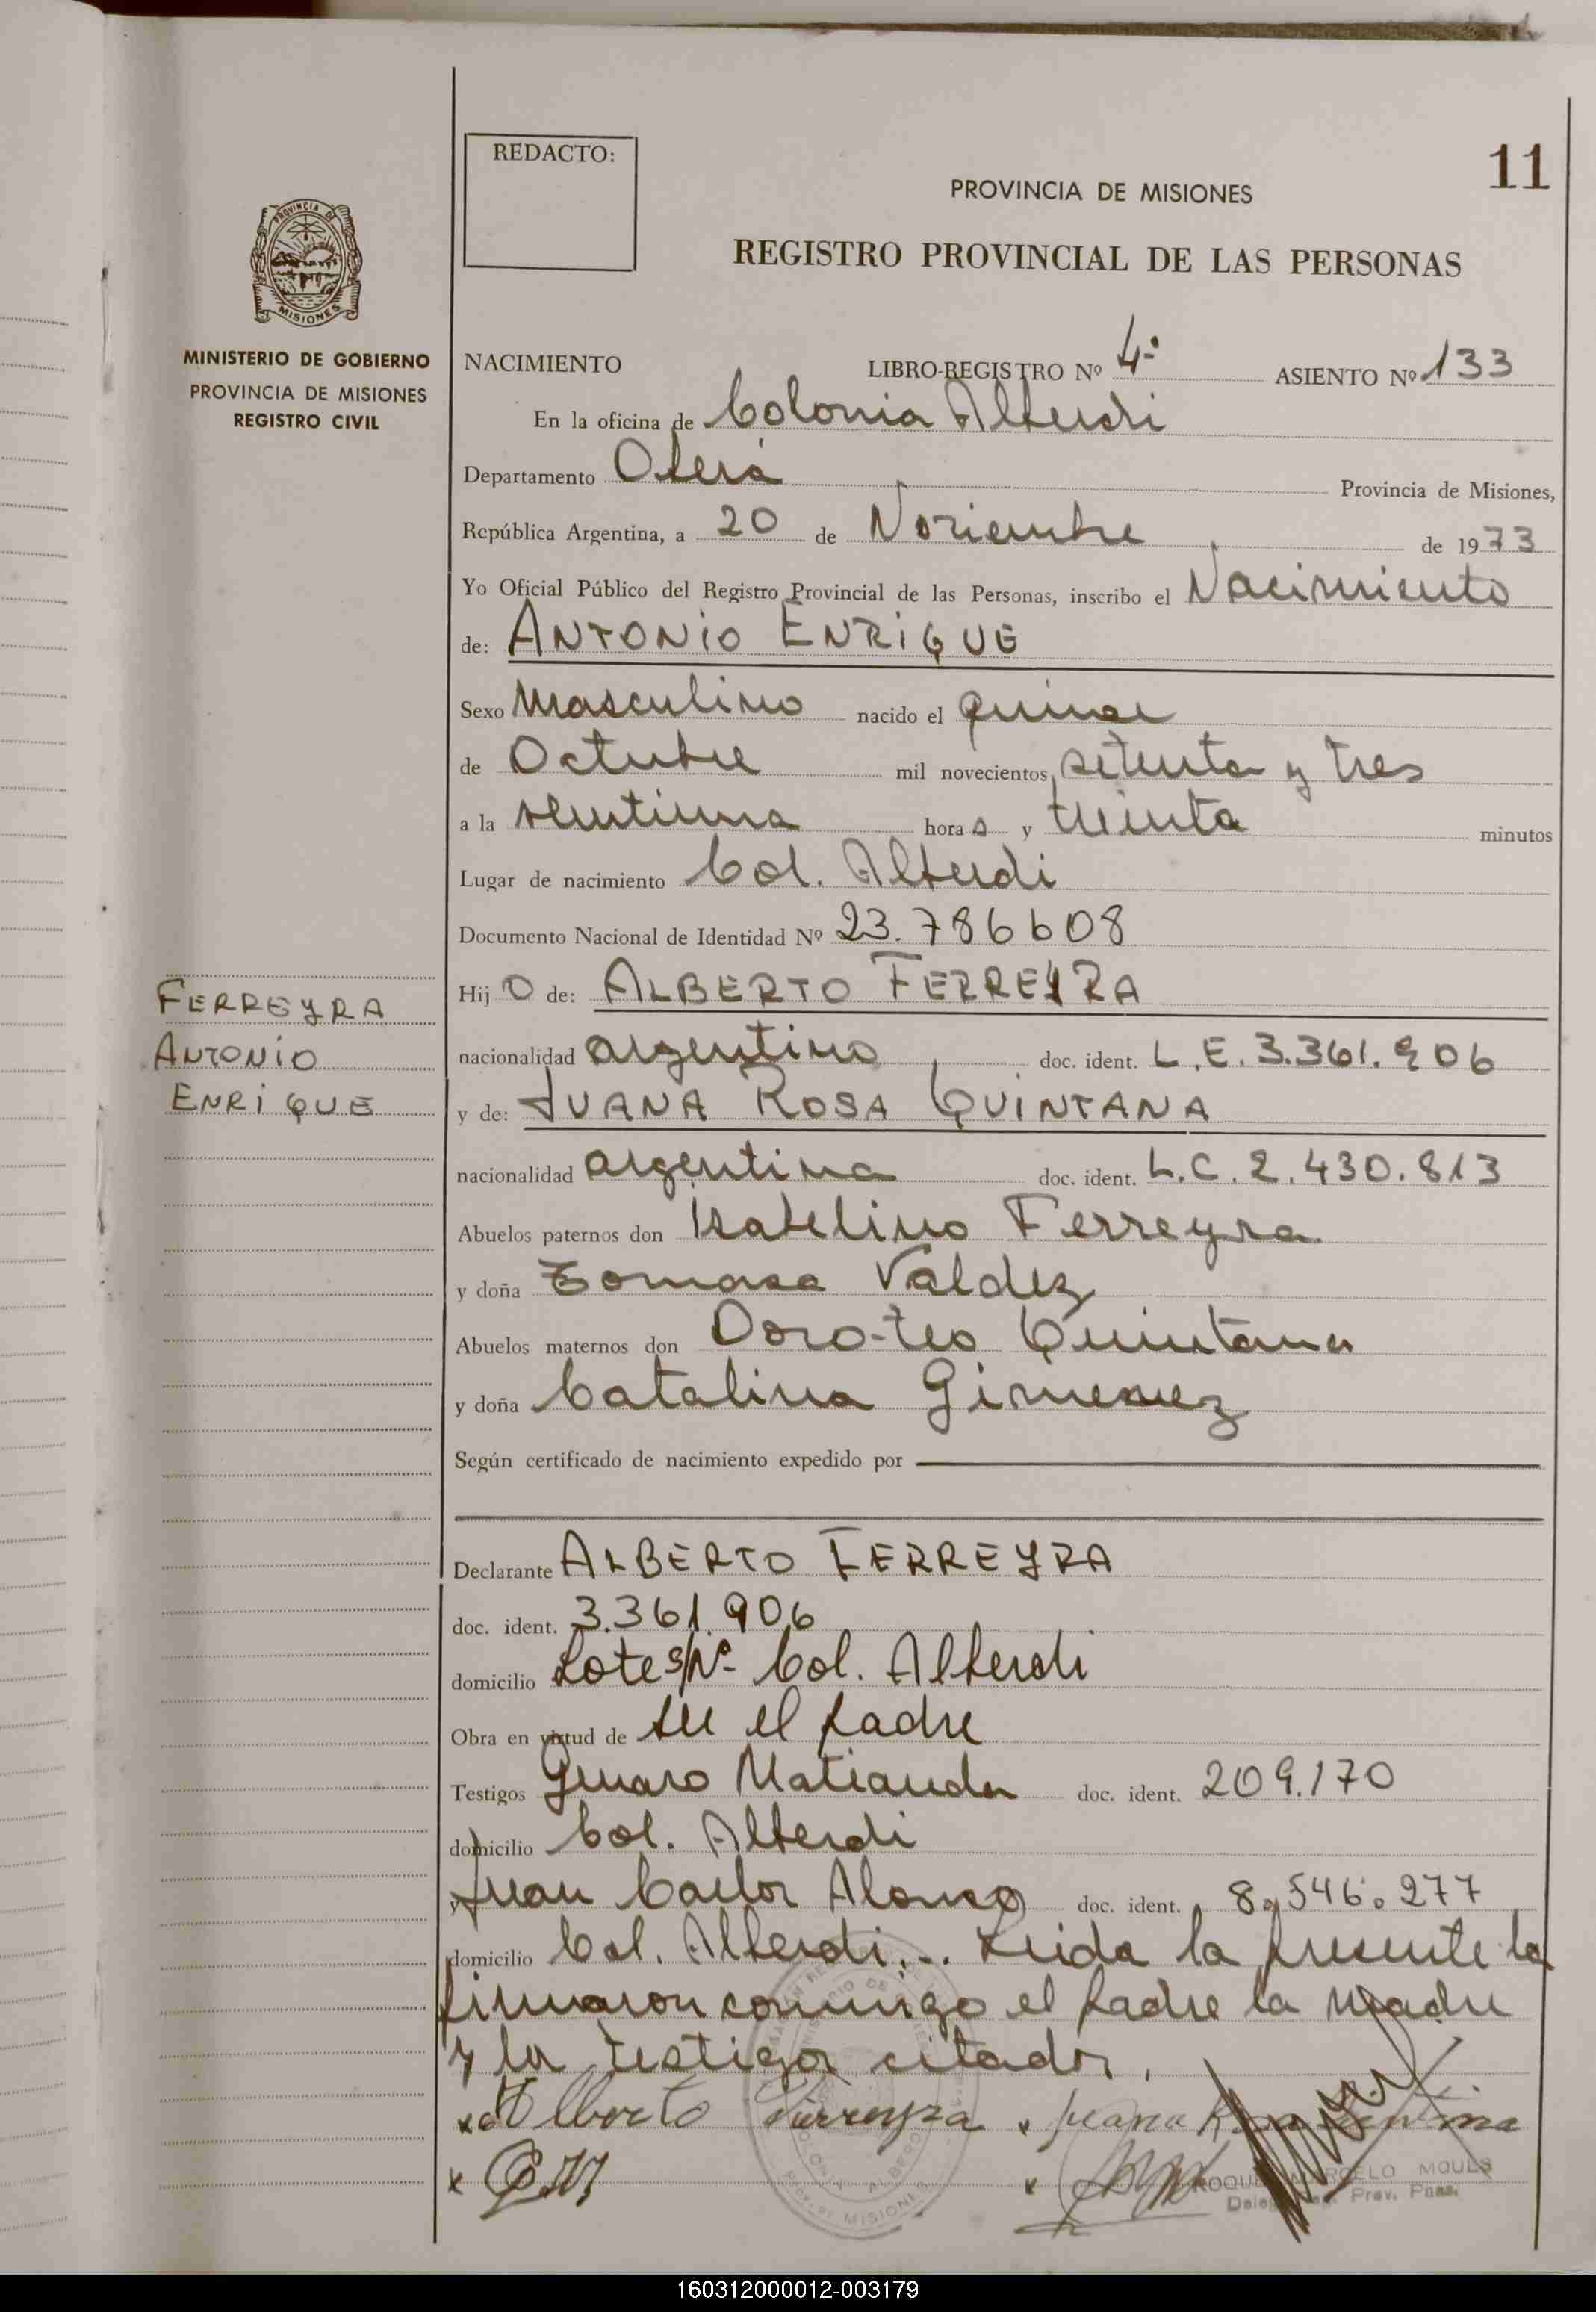 REDACTO:
11
PROVINCIA DE MISIONES
REGISTRO PROVINCIAL DE LAS PERSONAS
PROVINCIA DE
MISIONES
MINISTERIO DE GOBIERNO
PROVINCIA DE MISIONES
REGISTRO CIVIL
NACIMIENTO LIBRO-REGISTRO Nº 4º ASIENTO Nº 133
En la oficina de Colonia Alberdi
Departamento Oberá Provincia de Misiones,
República Argentina, a 20 de Noviembre de 1973
Yo Oficial Público del Registro Provincial de las Personas, inscribo el Nacimiento
de: ANTONIO ENRIQUE
Sexo Masculino nacido el quince
de Octubre mil novecientos setenta y tres
a la ventiuna horas y treinta minutos
Lugar de nacimiento Col. Alberdi
Documento Nacional de Identidad Nº 23.786608
Hijo de: ALBERTO FERREYRA
nacionalidad argentino doc. ident. L.E. 3.361.906
y de: JUANA ROSA QUINTANA
nacionalidad argentina doc. ident. L.C. 2.430.813
FERREYRA
ANTONIO
ENRIQUE
Abuelos paternos don Isabelino Ferreyra
y doña Tomasa Valdez
Abuelos maternos don Doroteo Quintana
y doña Catalina Gimenez
Según certificado de nacimiento expedido por
Declarante ALBERTO FERREYRA
doc. ident. 3.361.906
domicilio Lote s/Nº Col. Alberdi
Obra en virtud de ser el padre
Testigos Genaro Matiauda doc. ident. 209.170
domicilio Col. Alberdi
y Juan Carlos Alonso doc. ident. 8.546.277
domicilio Col. Alberdi... Leida la presente la
firmaron conmigo el padre la madre
y los testigos citados.
x Alberto Ferreyra x Juana Rosa Quintana
x x
ROQUE MARCELO MOULS
160312000012-003179